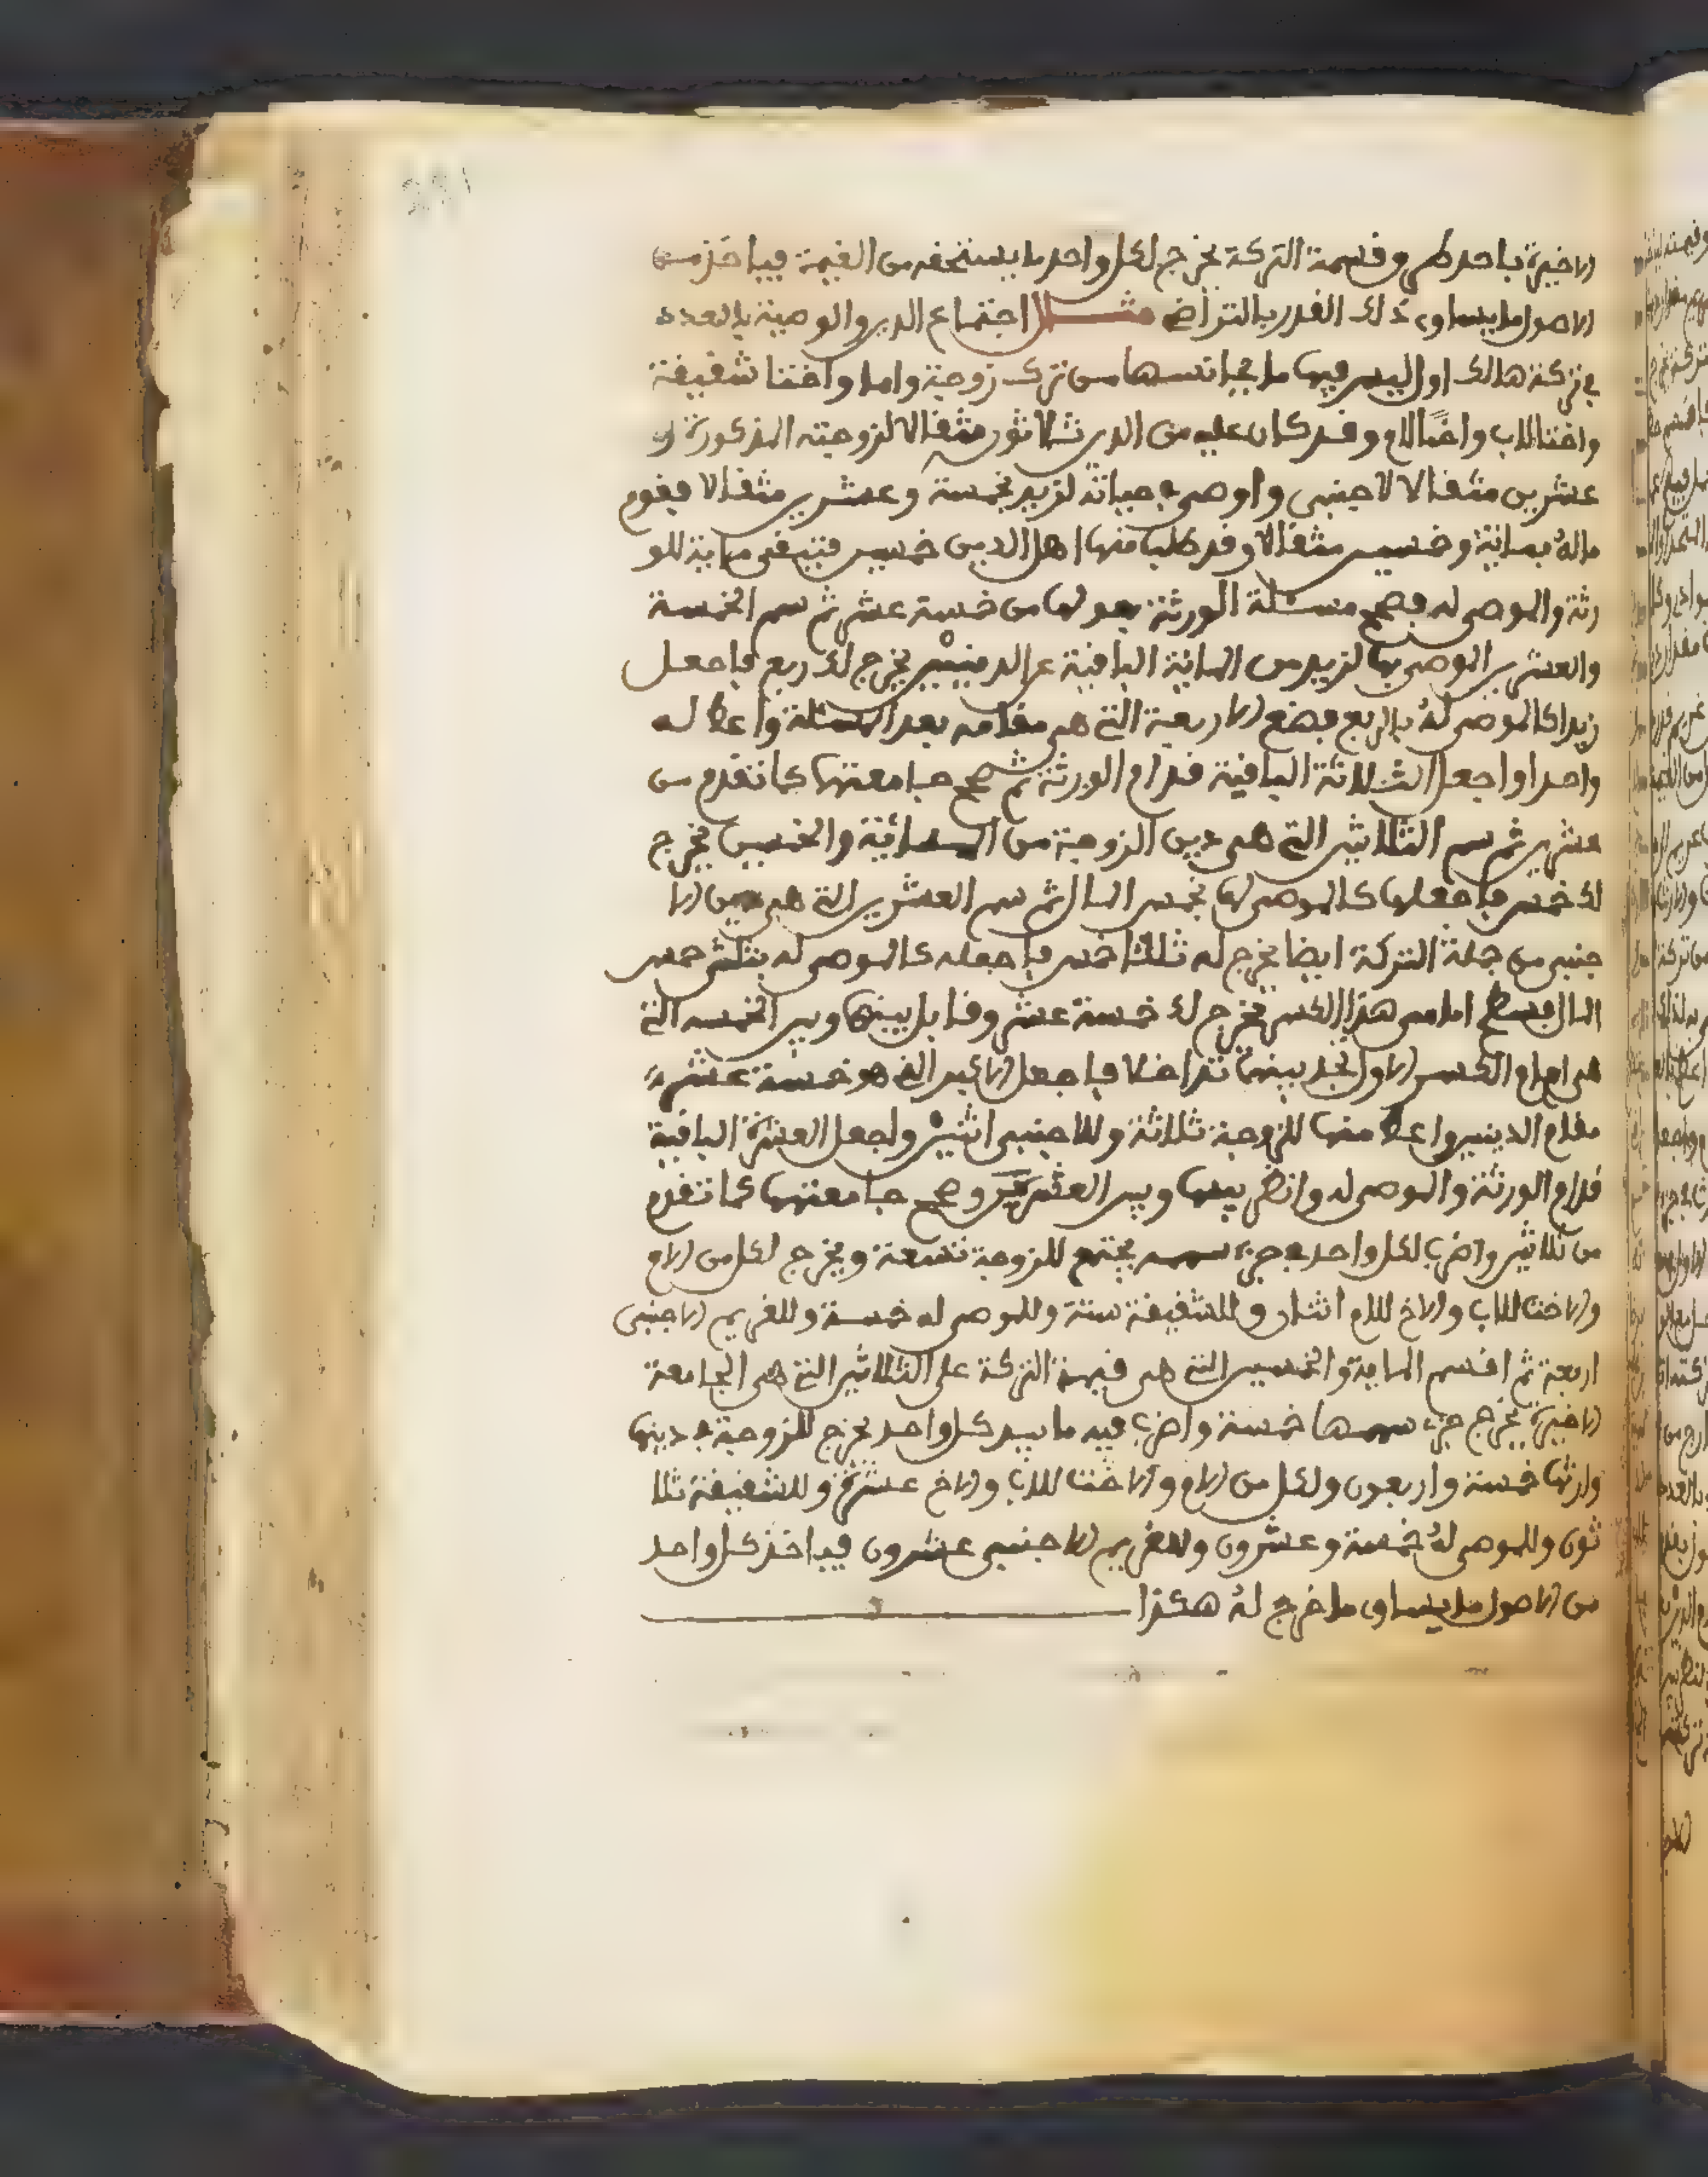 الاخيرة باحد طر وقسمة التركة يخرج لكل واحد ما يستحقه من القيمة فياخذ من
الاصول ما يساوي ذلك القدر بالتراضي مثال اجتماع الدين والوصية بالعدد
في تركة هالك اول ليس فيها ما يجانسها من ترك زوجة واما واختا شقيقة
واختا للاب واخا للام وقد كان عليه من الدين ثلاثون مثقالا لزوجته المذكورة و
عشرين مثقالا لاجنبي واوصى بحياته لزيد بخمسة وعشرين مثقالا فقوم
ماله بمائة وخمسين مثقالا وقد طلب منها اهل الدين خمسين فتبقى ماية للو
رثة والموصى له فصحح مسئلة الورثة بعولها من خمسة عشر ثم سم الخمسة
والعشرين الموصى بها لزيد من المائة الباقية عن الدينين يخرج لك ربع فاجعل
زيدا كالموصى له بالربع فضع الاربعة التي هي مقامه بعد المسئلة واعط له
واحدا واجعل الثلاثة الباقية قدام الورثة ثم صحح جامعتها كما تقدم من
عشرين ثم سم الثلاثين التي هي دين الزوجة من المائة والخمسين يخرج
لك خمس فاجعلها كالموصى لها بخمس المال ثم سم العشرين التي هي دين الا
جنبي من جملة التركة ايضا يخرج له ثلثا خمس فاجعله كالموصى له بثلثي خمس
المال فسطح امام هذا الكسر يخرج لك خمسة عشر وقابل بينها وبين الخمسة التي
هي امام الكسر الاول تجد بينهما تداخلا فاجعل الاكبر الذي هو خمسة عشر
مقام الدينين واعط منها للزوجة ثلاثة وللاجنبي اثنين واجعل العشرة الباقية
قدام الورثة والموصى له وانظر بينها وبين العشرين وصحح جامعتها كما تقدم
من ثلاثين واضرب لكل واحد في جزء سهمه يجتمع للزوجة تسعة ويخرج لكل من الام
والاخت للاب والاخ للام اثنان وللشقيقة ستة وللموصى له خمسة وللغريم الاجنبي
اربعة ثم اقسم الماية والخمسين التي هي قيمة التركة على الثلاثين التي هي الجامعة
الاخيرة يخرج جزء سهمها خمسة واضرب فيه ما بيد كل واحد يخرج للزوجة في دينها
وارثها خمسة واربعون ولكل من الام والاخت للاب والاخ عشرة وللشقيقة ثلا
ثون وللموصى له خمسة وعشرون وللغريم الاجنبي عشرون فياخذ كل واحد
من الاصول ما يساوي ما خرج له هكذا